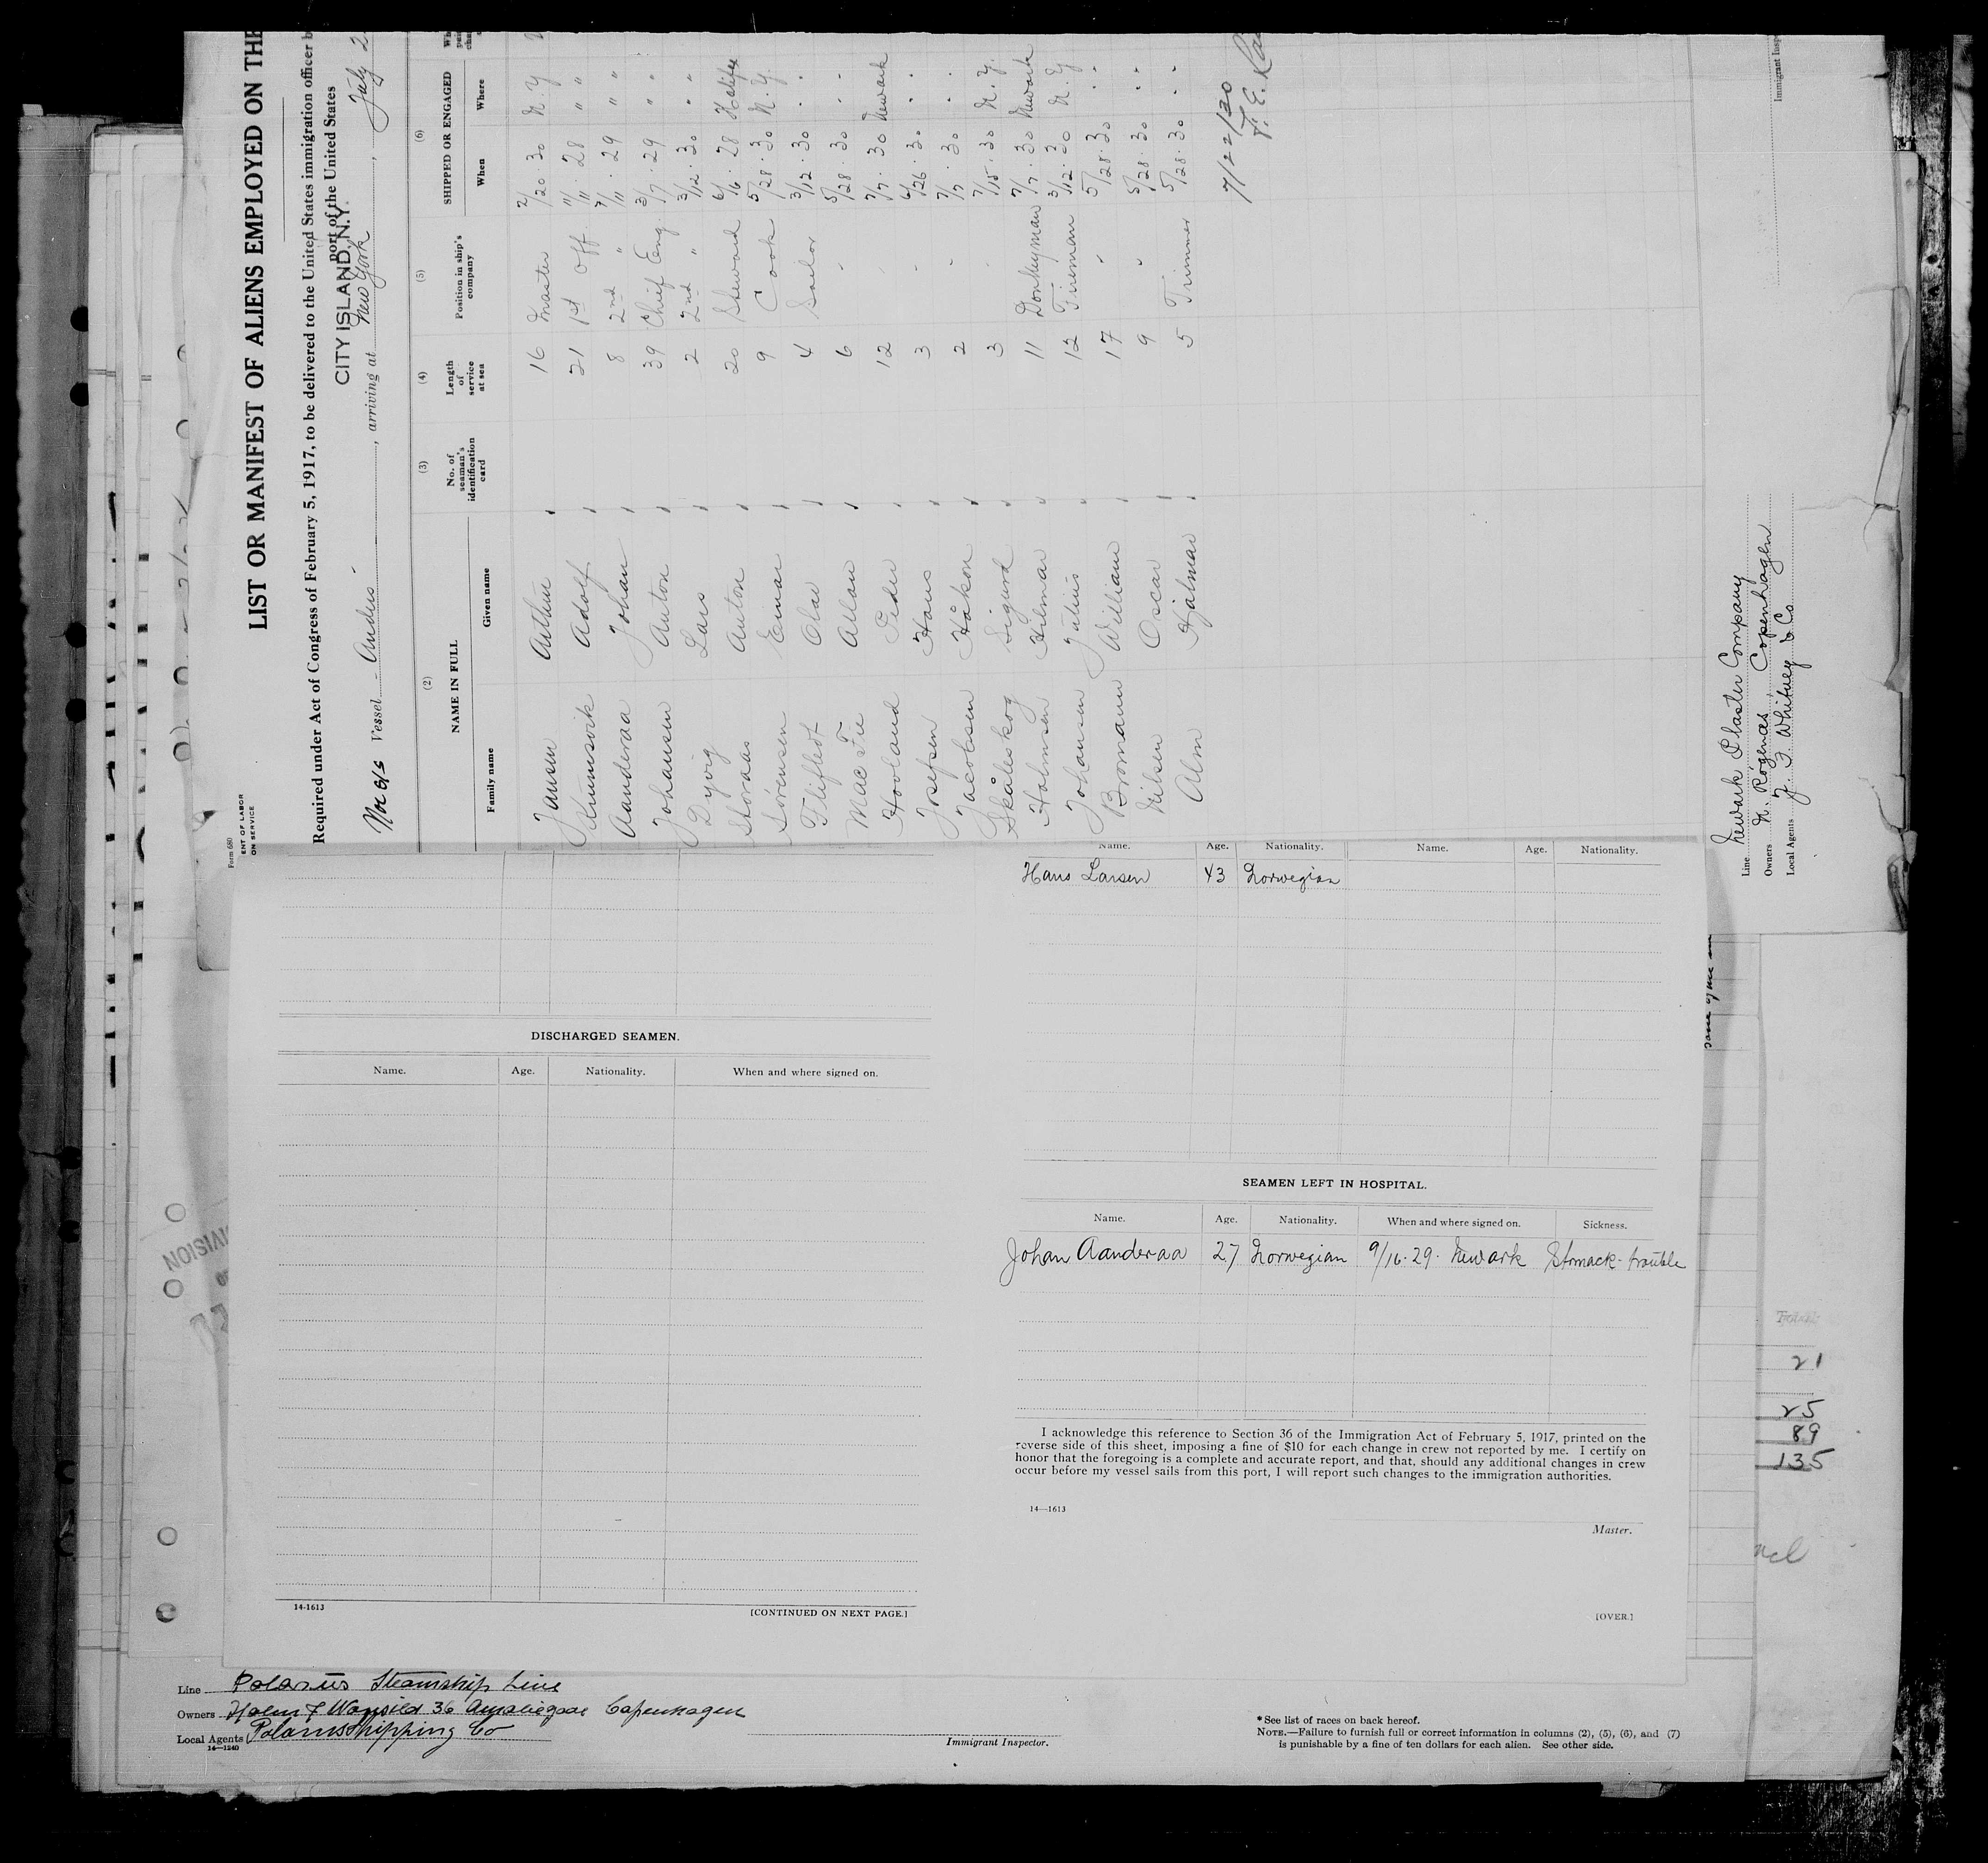 Form 680
ENT OF LABOR
ON SERVICE
LIST OR MANIFEST OF ALIENS EMPLOYED ON THE
Required under Act of Congress of February 5, 1917, to be delivered to the United States immigration officer b
port of the United States
CITY ISLAND, N.Y.
Nor s/s Vessel Anders, arriving at New York, July 2
(2) (3) (4) (5) (6)
NAME IN FULL
Family name Given name
No. of seaman's identification card
Length of service at sea
Position in ship's company
SHIPPED OR ENGAGED
When Where
Jansen Arthur 16 Master 2/20 30 N.Y
Kinnisvik Adolf 21 1st Off. 11/11 . 28 " "
Aanderaa Johan 8 2nd " 7/11 . 29 " "
Johansen Anton 39 Chief Eng. 3/7 . 29 " "
Dyvig Lars 2 2nd " 3/12 . 30 " "
Storaas Anton 20 Steward 6/6 . 28 Halifax
Sørensen Einar 9 Cook 5/28 . 30 N.Y.
Fliflet Olav 4 Sailor 3/12 . 30
Mac Fie Alan 6 5/28 . 30
Hovland Peder 12 7/7 . 30 Newark
Josefsen Hans 3 6/26 . 30
Jacobsen Håkon 2 7/7 . 30
Skåleskog Sigurd 3 7/15 . 30 N.Y.
Halmsen Hilmar 11 Donkeyman 7/7 . 30 Newark
Johansen Julius 12 Fireman 3/12 . 30 N.Y
Bromann William 17 5/28 . 30
Nilsen Oscar 9 5/28 30
Alm Hjalmar 5 Trimmer 5/28 . 30
7/22/30
Line Newark Plaster Company
Owners N. Rogenæs, Copenhagen
Local Agents J. F. Whitney & Co
Name. Age. Nationality. Name. Age. Nationality.
Hans Larsen 43 Norwegian
DISCHARGED SEAMEN.
Name. Age. Nationality. When and where signed on.
14-1613
[CONTINUED ON NEXT PAGE.]
SEAMEN LEFT IN HOSPITAL.
Name. Age. Nationality. When and where signed on. Sickness.
Johan Aanderaa 27 Norwegian 9/16 . 29 . Newark Stomack-trouble
I acknowledge this reference to Section 36 of the Immigration Act of February 5, 1917, printed on the
reverse side of this sheet, imposing a fine of $10 for each change in crew not reported by me. I certify on
honor that the foregoing is a complete and accurate report, and that, should any additional changes in crew
occur before my vessel sails from this port, I will report such changes to the immigration authorities.
14—1613
Master.
[OVER.]
21
25
89
135
Line Polarus Steamship Line
Owners Holm & Wonsild 36 Amaliegade Copenhagen
Local Agents Polarus Shipping Co
14—1240
Immigrant Inspector.
* See list of races on back hereof.
NOTE.—Failure to furnish full or correct information in columns (2), (5), (6), and (7)
is punishable by a fine of ten dollars for each alien. See other side.